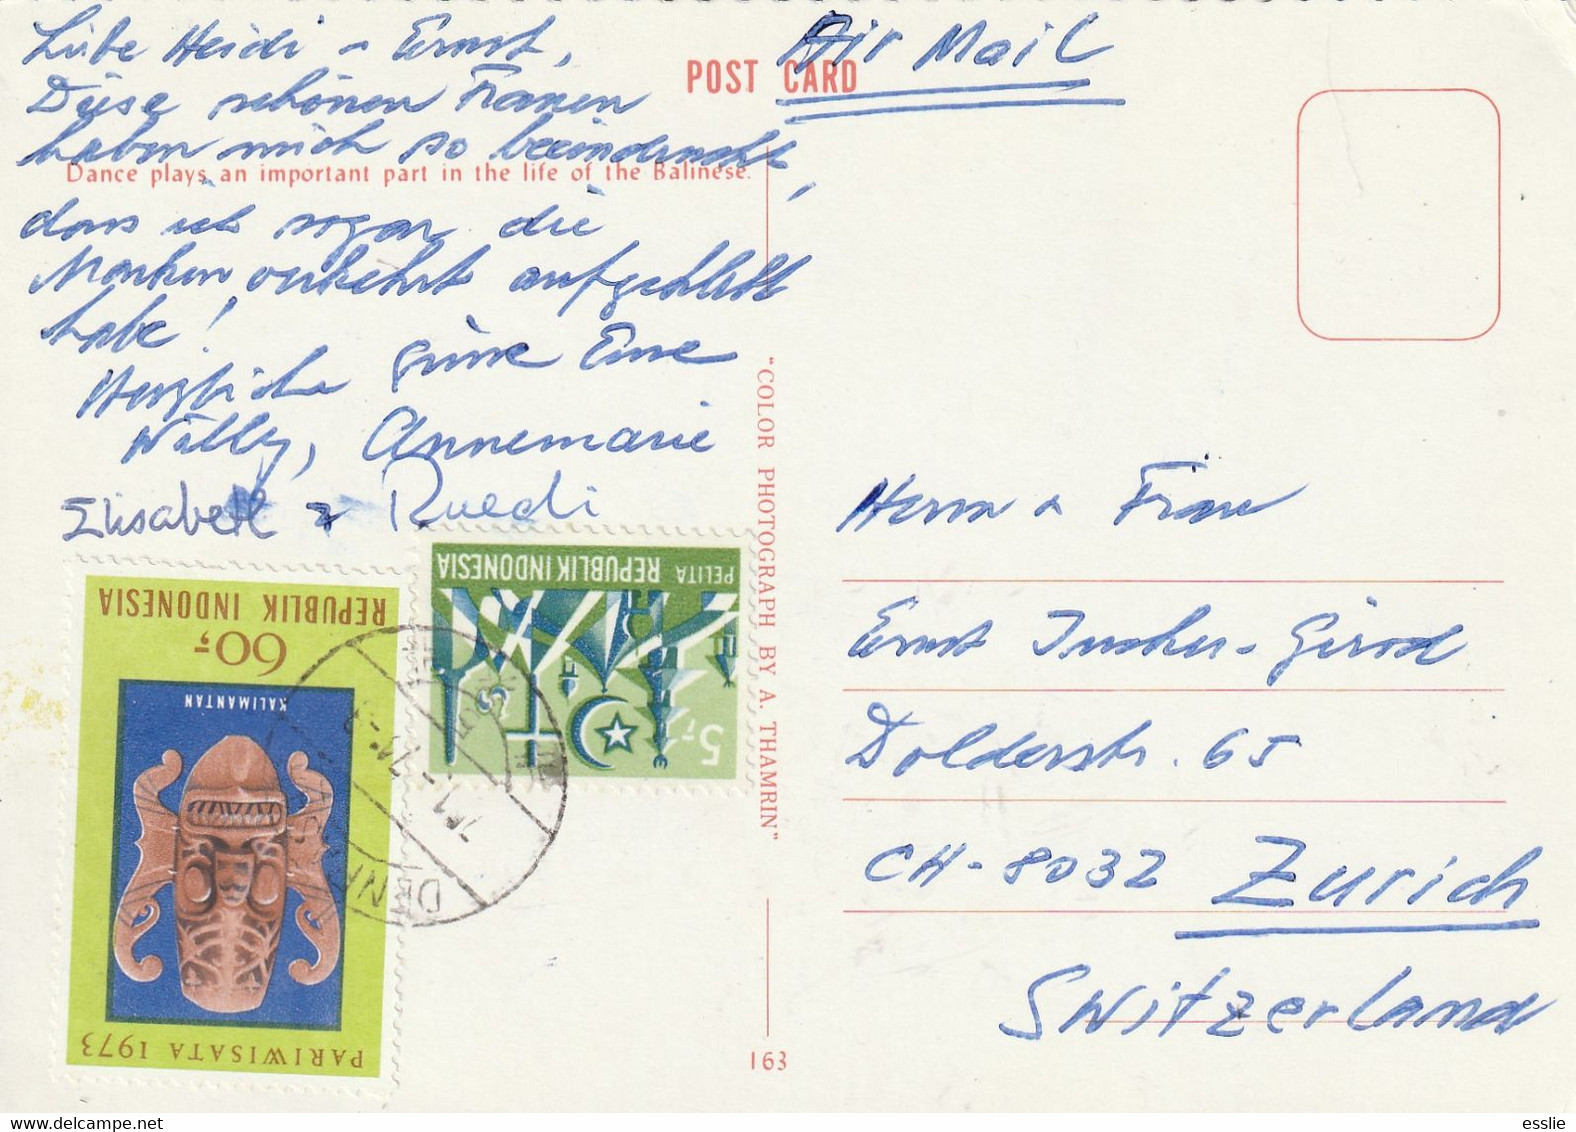 Liebe Heidi + Ernst,
Diese schönen Frauen
haben mich so beeindruckt,
dass ich sogar die
Marken verkehrt aufgeklebt
habe!
Herzliche Grüsse Eure
Willy, Annemarie
Elisabeth + Ruedi
Air Mail
POST CARD
Dance plays an important part in the life of the Balinese.
"COLOR PHOTOGRAPH BY A. THAMRIN"
163
Herrn + Frau
Ernst -Girod
Dolderstr. 65
CH-8032 Zürich
Switzerland
REPUBLIK INDONESIA
60,-
KALIMANTAN
PARIWISATA 1973
PELITA REPUBLIK INDONESIA
5,-
esslie